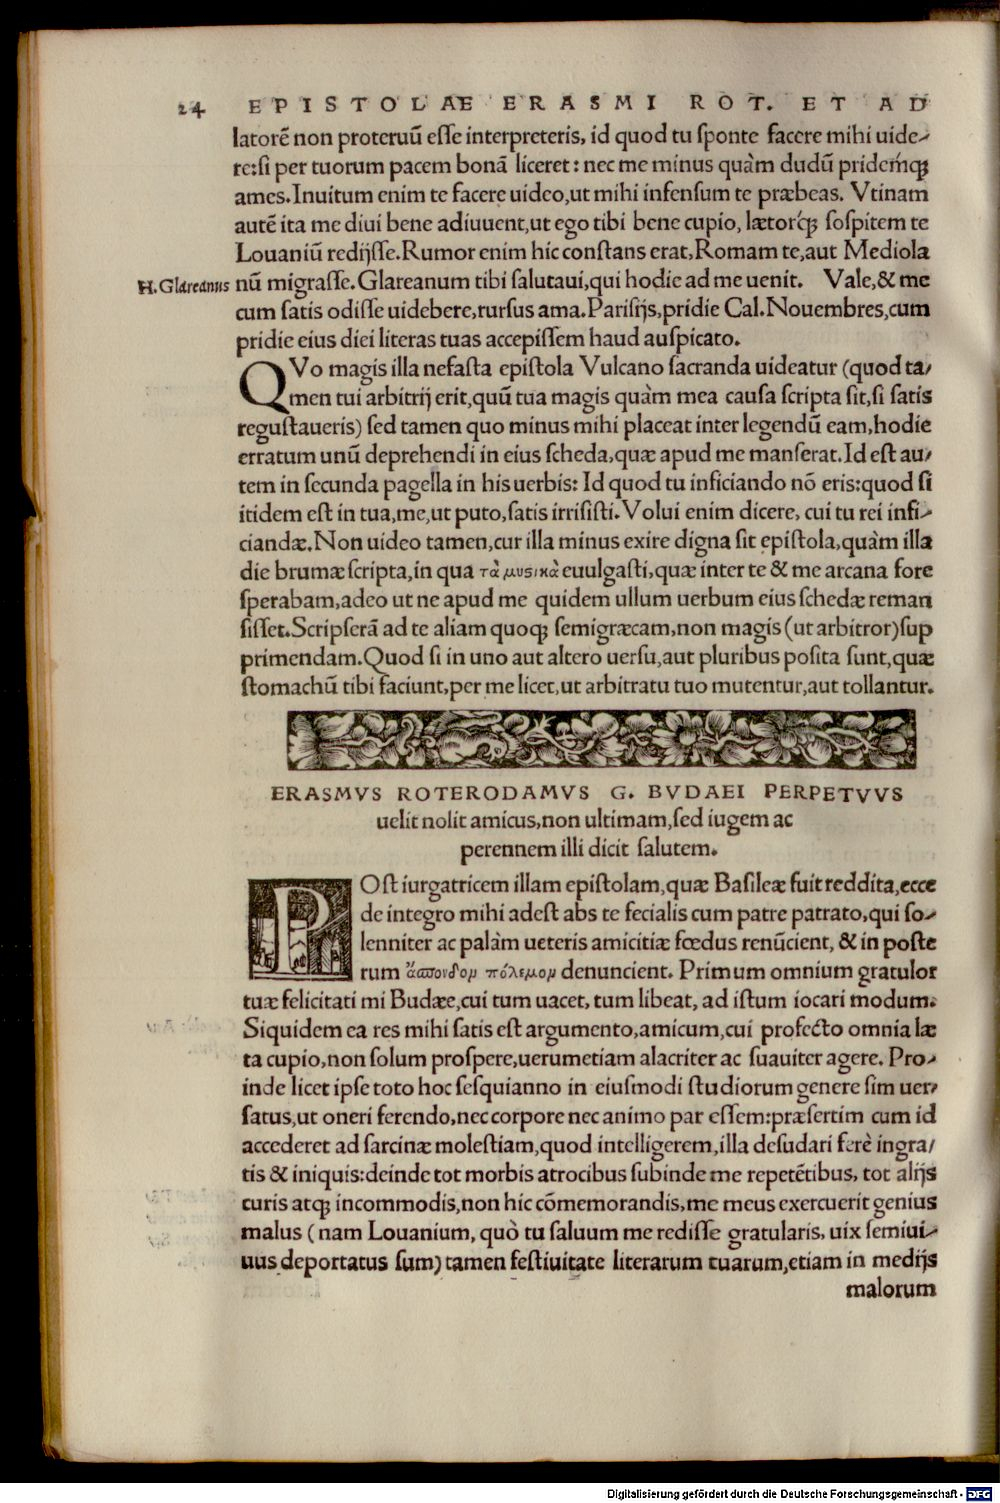 24 EPISTOLAE ERASMI ROT. ET AD
latorē non proteruū eſſe interpreteris, id quod tu ſponte facere mihi uide-
re:ſi per tuorum pacem bonā liceret: nec me minus quàm dudū pridemq́ꝫ
ames. Inuitum enim te facere uideo,ut mihi infenſum te præbeas. Vtinam
autē ita me diui bene adiuuent,ut ego tibi bene cupio, lætorq́ꝫ ſoſpitem te
Louaniū redijſſe. Rumor enim hic conſtans erat, Romam te,aut Mediola
H. Glareanus
nū migraſſe. Glareanum tibi ſalutaui,qui hodie ad me uenit. Vale,& me
cum ſatis odiſſe uidebere,rurſus ama. Pariſijs,pridie Cal. Nouembres,cum
pridie eius diei literas tuas accepiſſem haud auſpicato.
QVo magis illa nefaſta epiſtola Vulcano ſacranda uideatur (quod ta-
men tui arbitrij erit,quū tua magis quàm mea cauſa ſcripta ſit,ſi ſatis
reguſtaueris) ſed tamen quo minus mihi placeat inter legendū eam,hodie
erratum unū deprehendi in eius ſcheda,quæ apud me manſerat. Id eſt au-
tem in ſecunda pagella in his uerbis: Id quod tu inficiando nō eris:quod ſi
itidem eſt in tua,me,ut puto,ſatis irriſiſti. Volui enim dicere, cui tu rei infi-
ciandæ. Non uideo tamen,cur illa minus exire digna ſit epiſtola,quàm illa
die brumæ ſcripta,in qua τὰ μυστικὰ euulgaſti,quæ inter te & me arcana fore
ſperabam,adeo ut ne apud me quidem ullum uerbum eius ſchedæ reman
ſiſſet. Scripſerā ad te aliam quoqꝫ ſemigræcam,non magis (ut arbitror)ſup
primendam. Quod ſi in uno aut altero uerſu,aut pluribus poſita ſunt,quæ
ſtomachū tibi faciunt,per me licet,ut arbitratu tuo mutentur,aut tollantur.
ERASMVS ROTERODAMVS G. BVDAEI PERPETVVS
uelit nolit amicus,non ultimam,ſed iugem ac
perennem illi dicit ſalutem.
POſt iurgatricem illam epiſtolam,quæ Baſileæ fuit reddita,ecce
de integro mihi adeſt abs te fecialis cum patre patrato,qui ſo-
lenniter ac palàm ueteris amicitiæ fœdus renūcient, & in poſte
rum ἄσπονδον πόλεμον denuncient. Primum omnium gratulor
tuæ felicitati mi Budæe,cui tum uacet, tum libeat, ad iſtum iocari modum.
Siquidem ea res mihi ſatis eſt argumento,amicum,cui profecto omnia læ
ta cupio,non ſolum proſpere,uerumetiam alacriter ac ſuauiter agere. Pro-
inde licet ipſe toto hoc ſeſquianno in eiuſmodi ſtudiorum genere ſim uer-
ſatus,ut oneri ferendo,nec corpore nec animo par eſſem:præſertim cum id
accederet ad ſarcinæ moleſtiam,quod intelligerem,illa deſudari ferè ingra-
tis & iniquis:deinde tot morbis atrocibus ſubinde me repetētibus, tot alijs
curis atqꝫ incommodis,non hic cōmemorandis,me meus exercuerit genius
malus (nam Louanium, quò tu ſaluum me rediſſe gratularis, uix ſemiui-
uus deportatus ſum) tamen feſtiuitate literarum tuarum,etiam in medijs
malorum
Digitalisierung gefördert durch die Deutsche Forschungsgemeinschaft - DFG